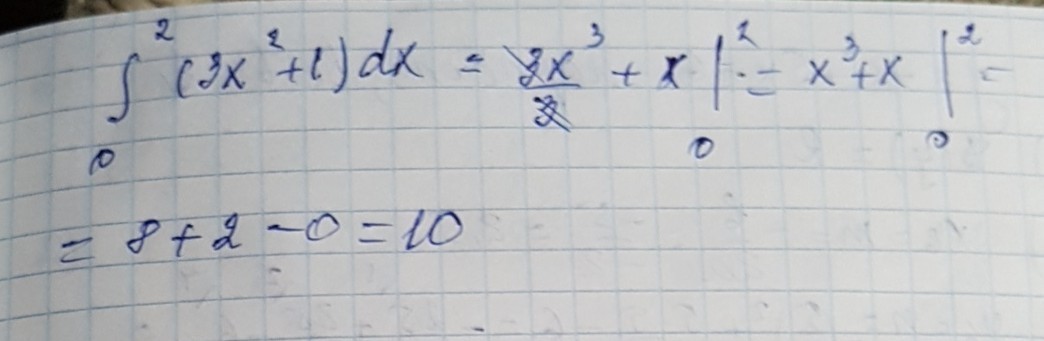 ∫₀² (3x²+1)dx = 3x³/3 + x |₀² = x³+x |₀² =
= 8+2-0=10